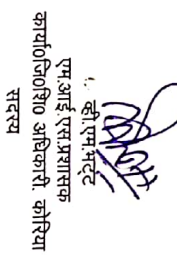 व्ही.एस.भट्ट
एम.आई.एस.प्रशासक
कार्या0जि0शि0 अधिकारी, कोरिया
सदस्य